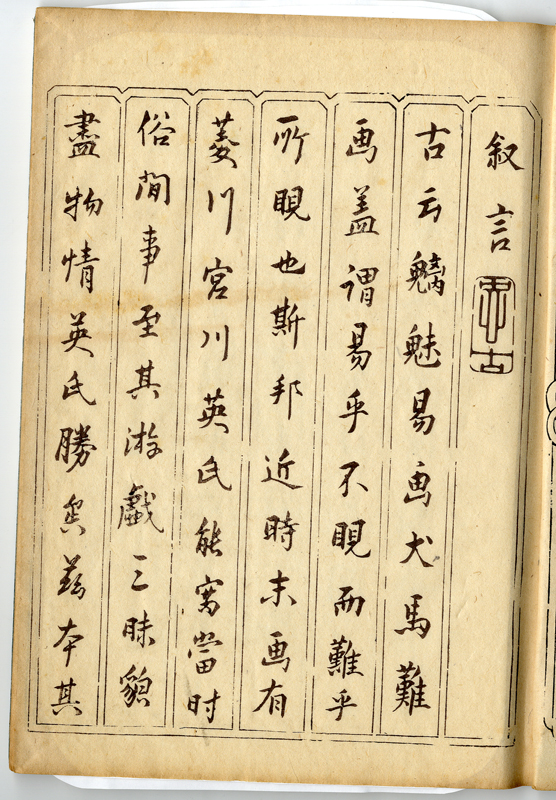 叙言
古云魑魅易画犬馬難
画盖謂易乎不睍而難乎
所睍也斯邦近時末画有
菱川宮川英氏能寫當时
俗間事至其游戲三昧貌
盡物情英氏勝矣茲本其